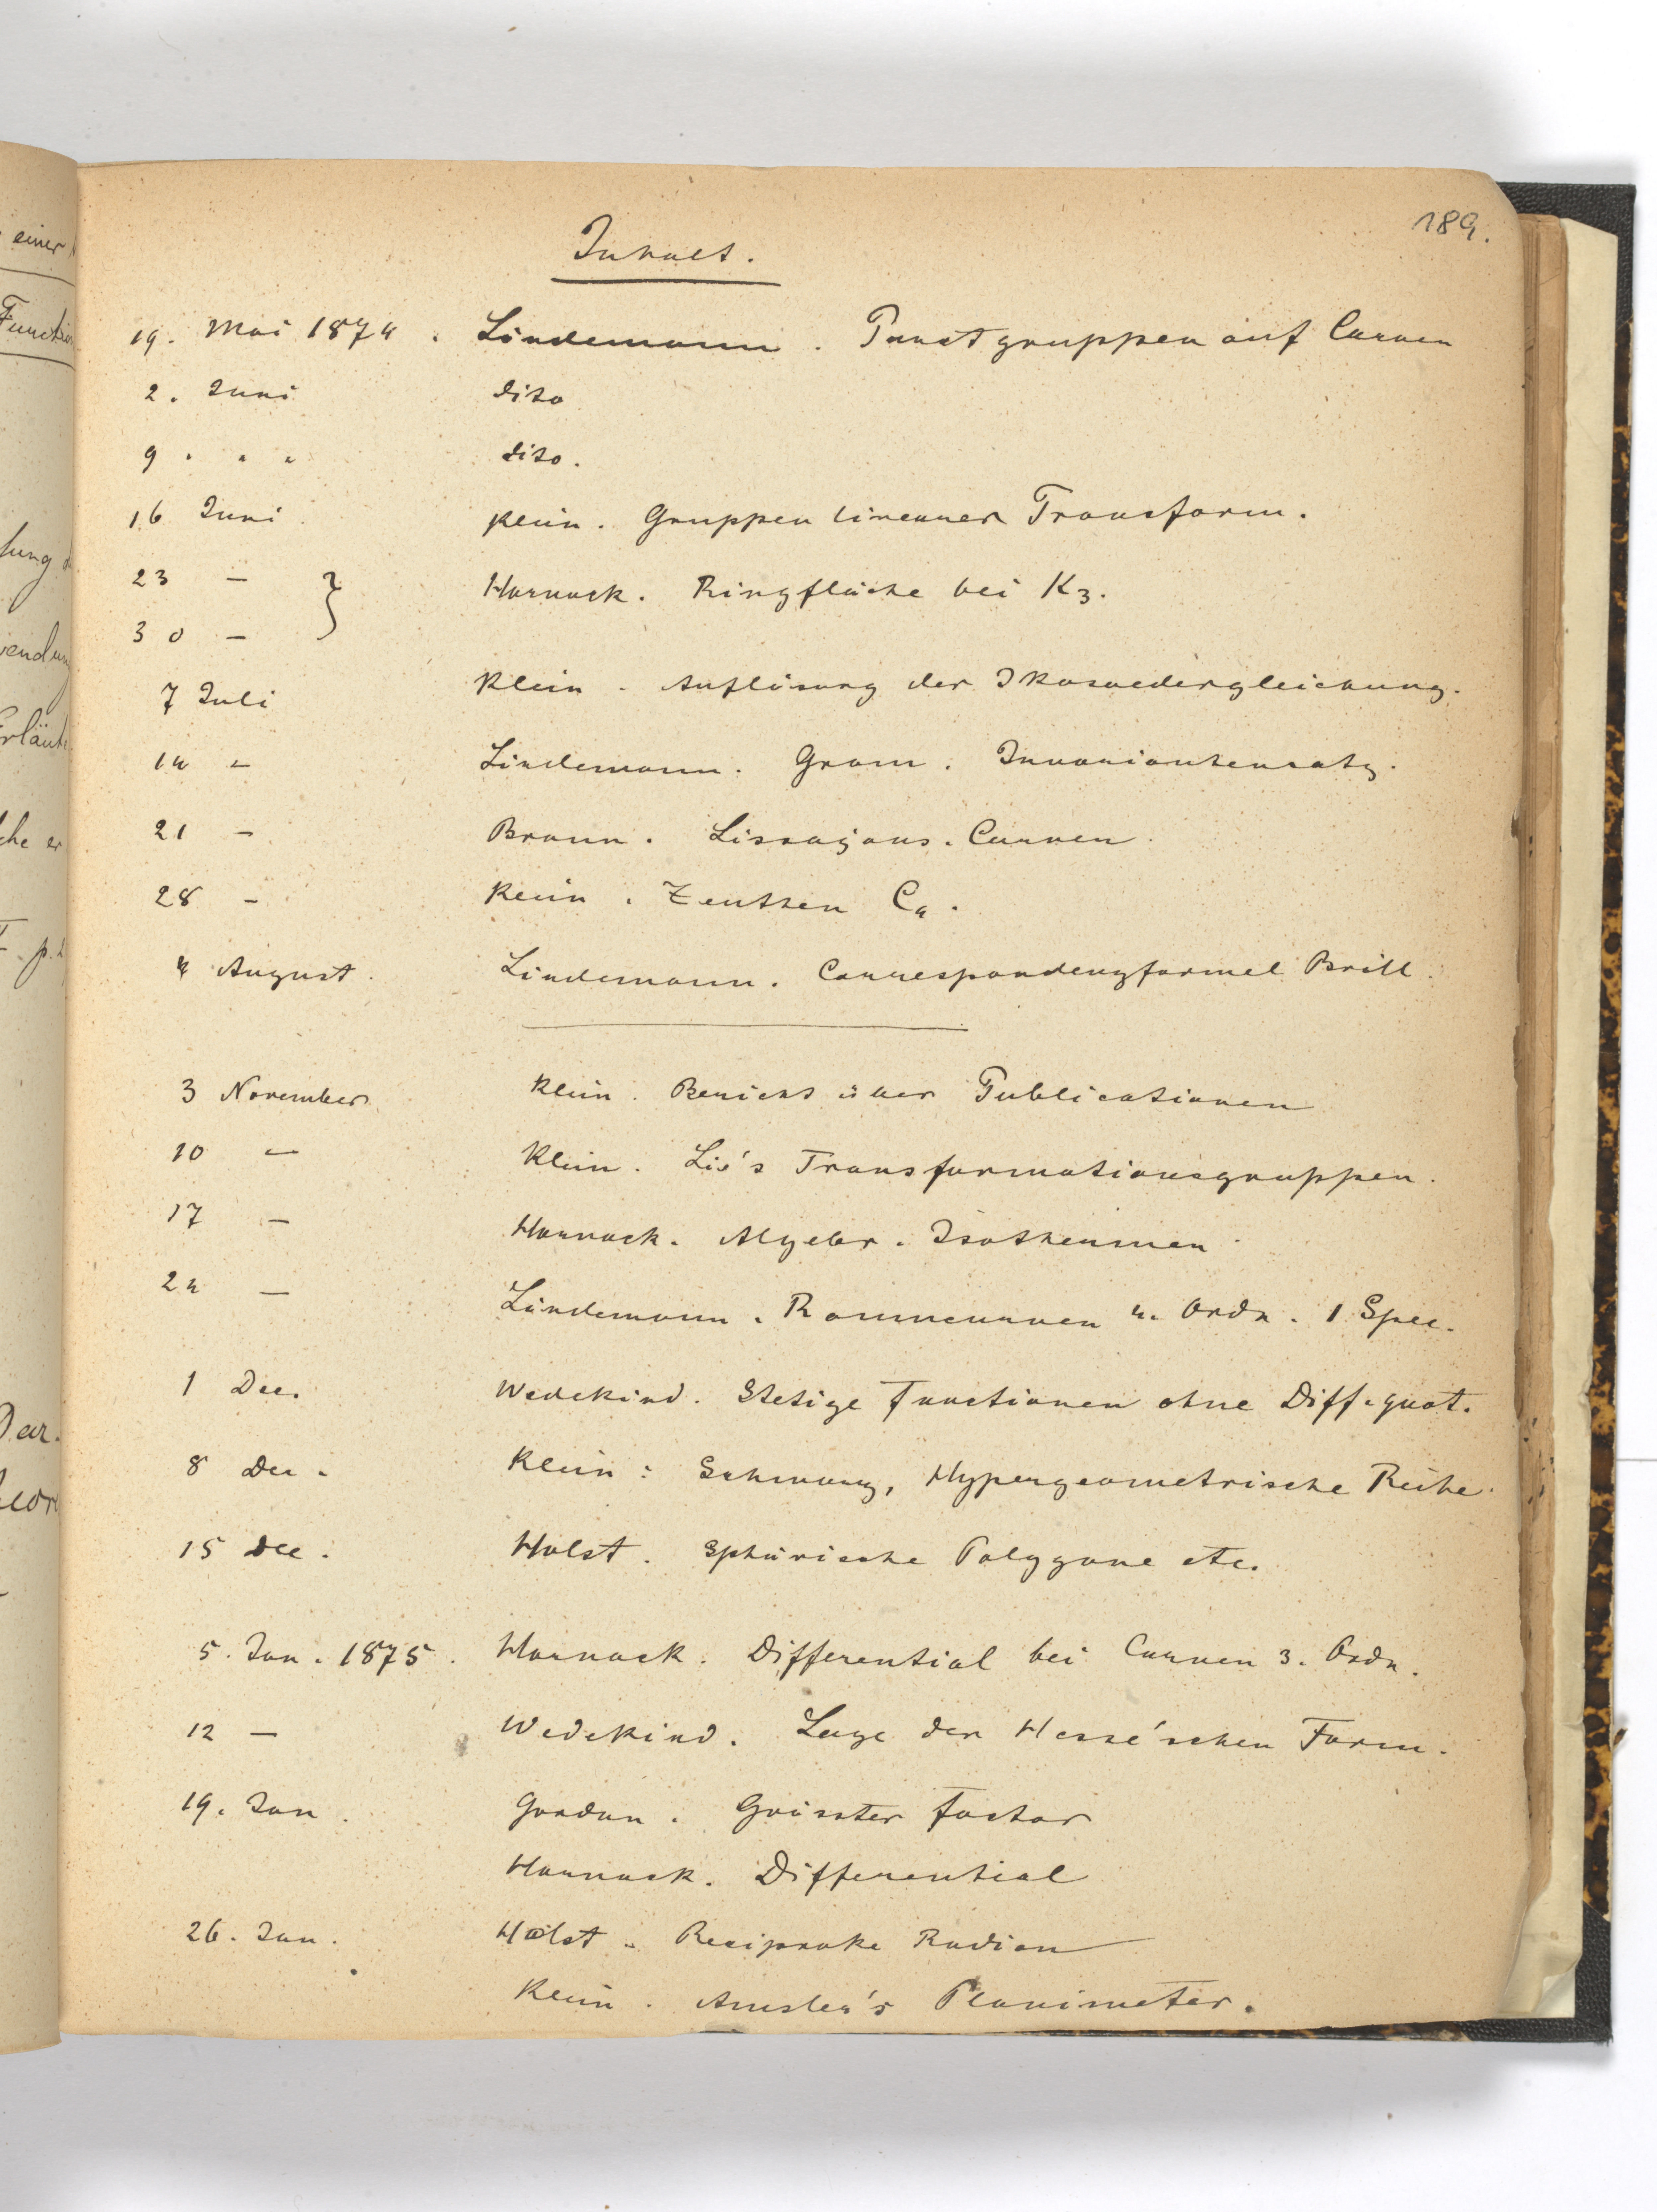 189.
Inhalt.
19. Mai 1874. Lindemann. Punctgruppen auf Curven
2. Juni dito
9 " " " dito.
16 Juni Klein. Gruppen linearer Transform.
23 — } Harnack. Ringfläche bei K3.
30 —
7 Juli Klein - Auflösung der Ikosaedergleichung.
14 - Lindemann. Gram. Invariantensatz.
21 - Braun. Lissajous. Curven.
28 - Klein. Zeuthen C4.
4 August. Lindemann. Correspondenzformel Brill.
3 November Klein. Bericht über Publicationen
10 — Klein. Lie's Transformationsgruppen.
17 — Harnack. Algebr. Isothermen
24 — Lindemann. Raumcurven 4. Ordn. 1 Spec.
1 Dec. Wedekind. Stetige Functionen ohne Diff.quot.
8 Dec. Klein: Schwarz, Hypergeometrische Reihe.
15 Dec. Holst. Sphärische Polygone etc.
5. Jan. 1875. Harnack. Differential bei Curven 3. Ordn.
12 — Wedekind. Lage der Hesse'schen Form.
19. Jan. Gordan. Grösster Factor
Harnack. Differential
26. Jan. Holst. Reciproke Radien
Klein. Amsler's Planimeter.